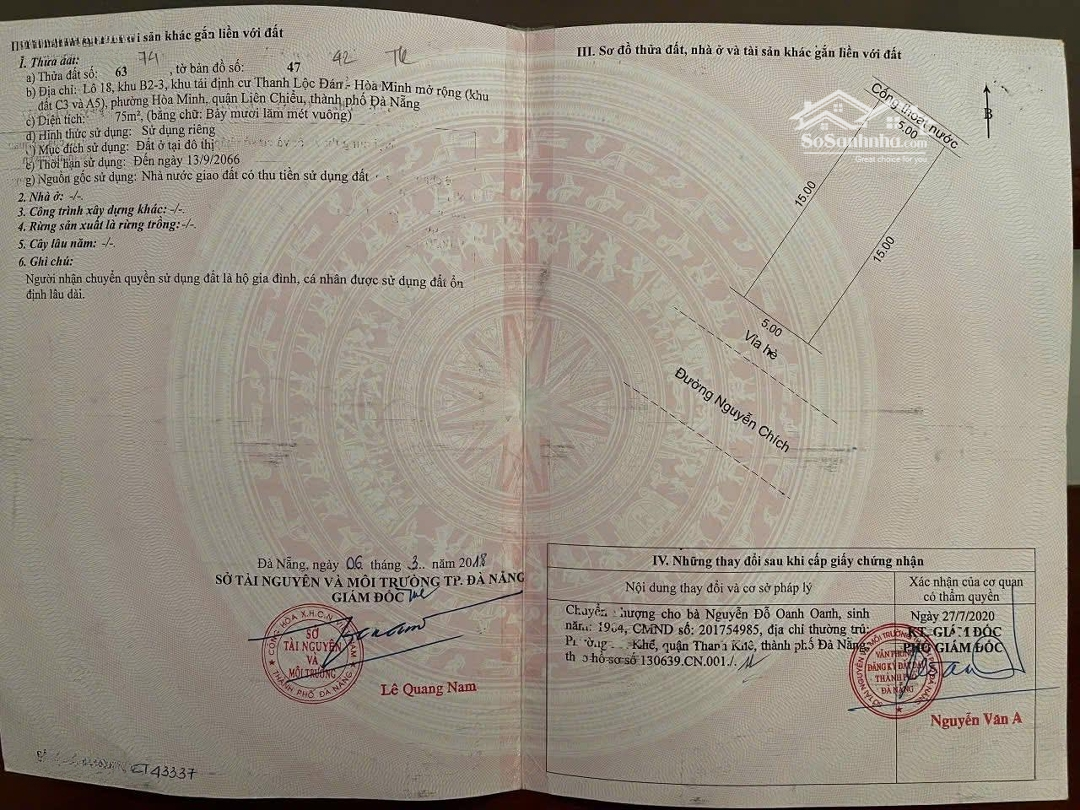 sản khác gắn liền với đất
1. Thửa đất: 74 42
a) Thửa đất số: 63 , tờ bản đồ số: 47
b) Địa chỉ: Lô 18, khu B2-3, khu tái định cư Thanh Lộc Đán - Hòa Minh mở rộng (khu
đất C3 và A5), phường Hòa Minh, quận Liên Chiểu, thành phố Đà Nẵng
c) Diện tích: 75m², (bằng chữ: Bảy mươi lăm mét vuông)
d) Hình thức sử dụng: Sử dụng riêng
Mục đích sử dụng: Đất ở tại đô thị
e) Thời hạn sử dụng: Đến ngày 13/9/2066
g) Nguồn gốc sử dụng: Nhà nước giao đất có thu tiền sử dụng đất
2. Nhà ở: -/-.
3. Công trình xây dựng khác: -/-.
4. Rừng sản xuất là rừng trồng:-/-.
5. Cây lâu năm: -/-.
6. Ghi chú:
Người nhận chuyển quyền sử dụng đất là hộ gia đình, cá nhân được sử dụng đất ổn
định lâu dài.
Đà Nẵng, ngày 06 tháng 3.. năm 2018
SỞ TÀI NGUYÊN VÀ MÔI TRƯỜNG TP. ĐÀ NẴNG
GIÁM ĐỐC
CỘNG HÒA X.H.C.N
SỞ
TÀI NGUYÊN
VÀ
MÔI TRƯỜNG
THÀNH PHỐ ĐÀ NẴNG
Lê Quang Nam
CT43337
III. Sơ đồ thửa đất, nhà ở và tài sản khác gắn liền với đất
Cống thoát nước
5.00
B
SoSanhnha.com
Great choice for you
15.00
15.00
5.00
Vỉa hè
Đường Nguyễn Chích
IV. Những thay đổi sau khi cấp giấy chứng nhận
Nội dung thay đổi và cơ sở pháp lý
Xác nhận của cơ quan
có thẩm quyền
Chuyển nhượng cho bà Nguyễn Đỗ Oanh Oanh, sinh
năm: 1984, CMND số: 201754985, địa chỉ thường trú:
Khê, quận Thanh Khê, thành phố Đà Nẵng,
hồ sơ số 130639.CN.001./.
Ngày 27/7/2020
KT. GIÁM ĐỐC
PHÓ GIÁM ĐỐC
VĂN PHÒNG
ĐĂNG KÝ ĐẤT ĐAI
THÀNH PHỐ
ĐÀ NẴNG
Nguyễn Văn A